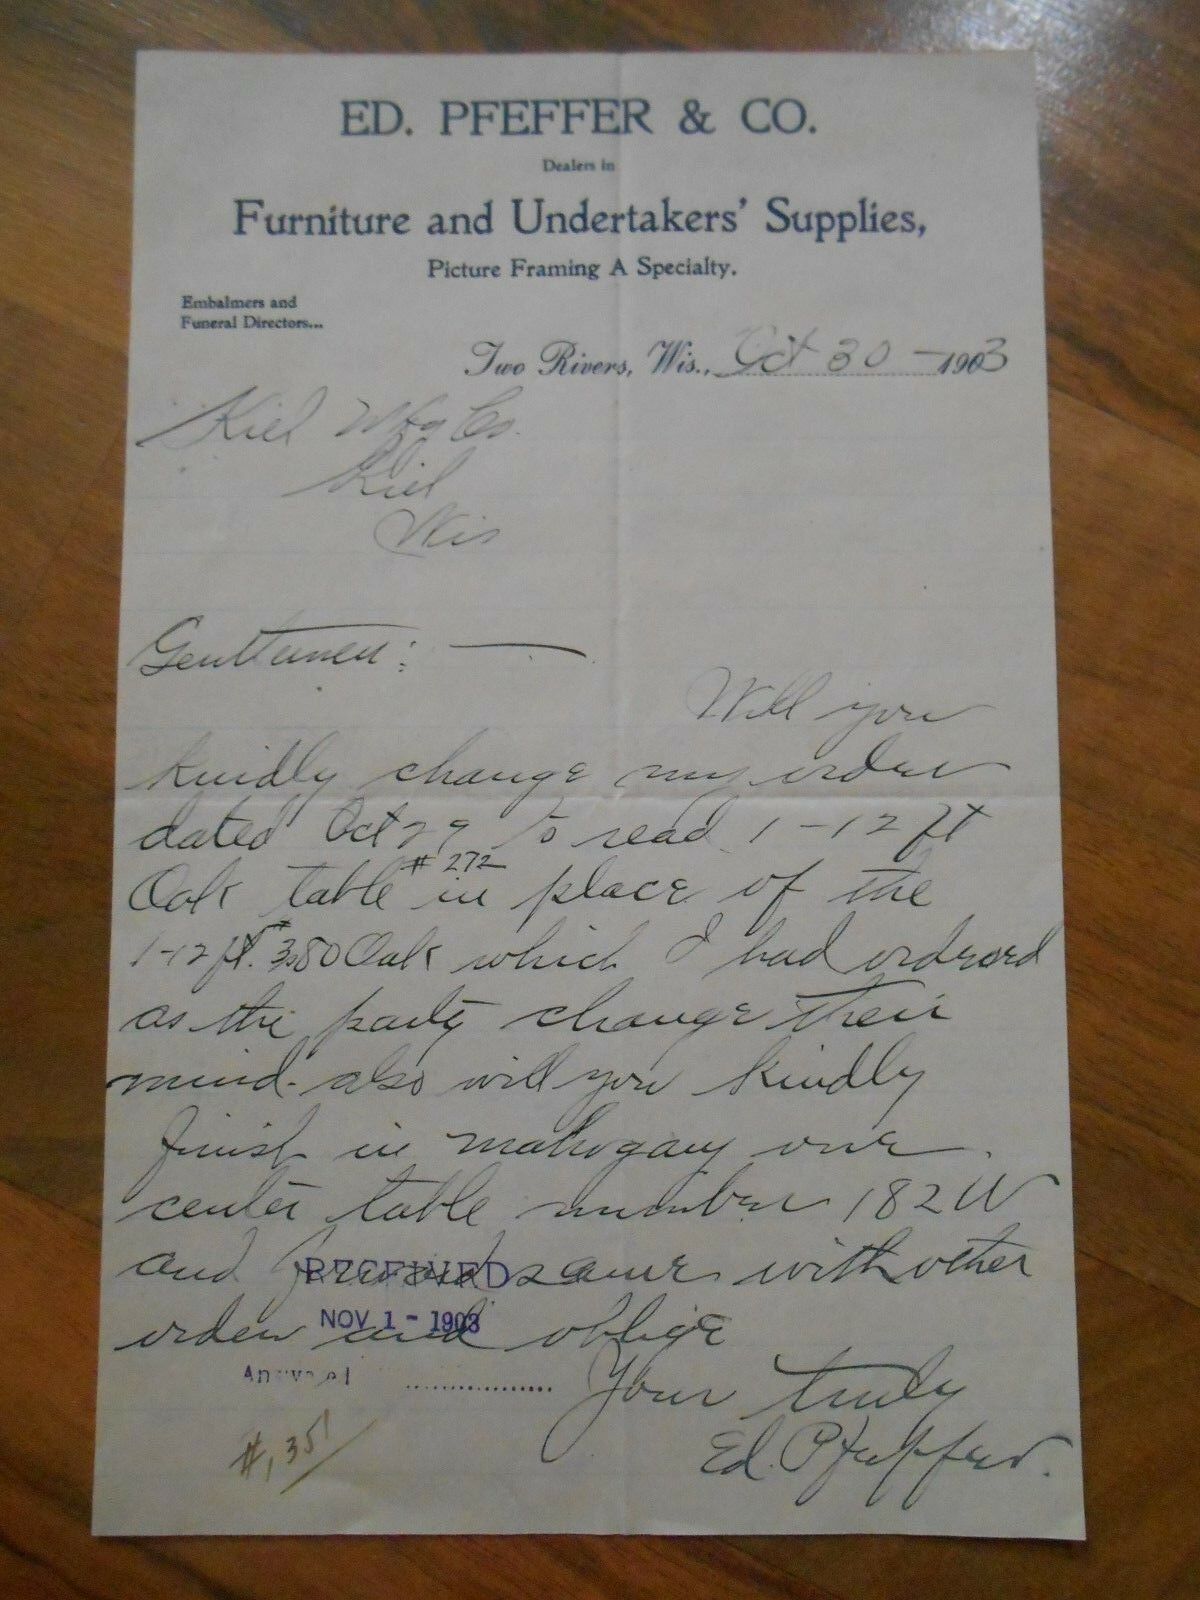 ED. PFEFFER & CO.
Dealers in
Furniture and Undertakers' Supplies,
Picture Framing A Specialty.
Embalmers and
Funeral Directors...
Two Rivers, Wis., Oct 30 - 1903
Kiel Mfg Co.
Kiel
Wis
Gentlemen: —
Will you
kindly change my order
dated Oct 29 to read 1-12 ft
Oak table #272 in place of the
1-12 ft. #380 Oak which I had ordered
as the party change their
mind - also will you kindly
finish in mahogany one
center table number 182W
and forward same with other
order and oblige
RECEIVED
NOV 1 - 1903
Answered ..................
Your truly
Ed. Pfeffer.